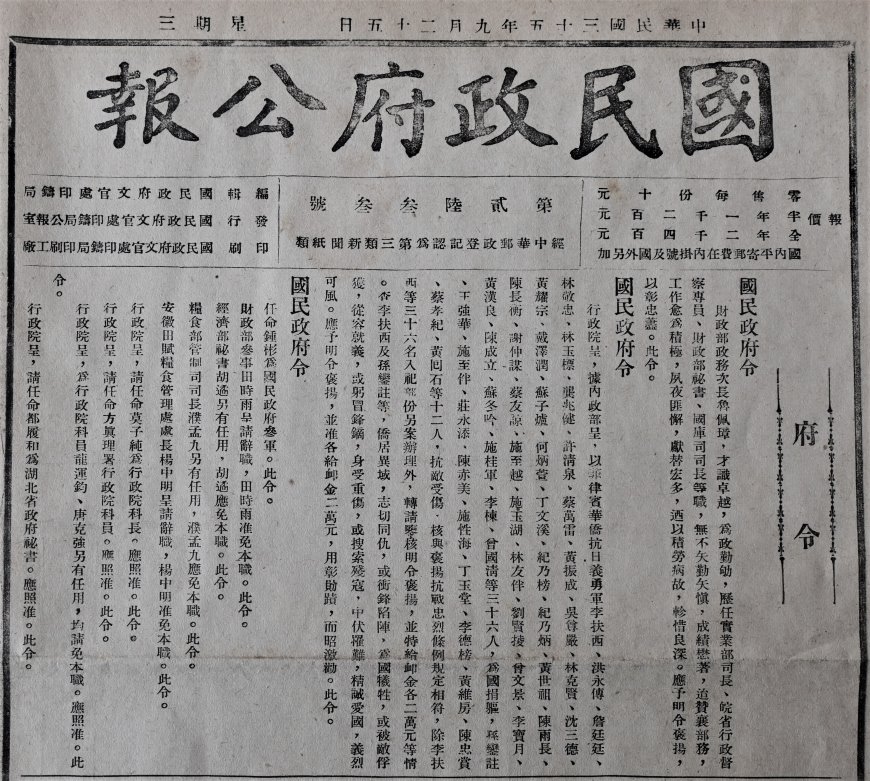 中華民國三十五年九月二十五日 星期三
國民政府公報
報價
零售每份十元
半年一千二百元
全年二千四百元
國內平寄郵費在內掛號及國外另加
第貳陸叁叁號
經中華郵政登記認為第三類新聞紙類
編輯 國民政府文官處印鑄局
發行 國民政府文官處印鑄局公報室
印刷 國民政府文官處印鑄局印刷工廠
府令
國民政府令
財政部政務次長魯佩璋,才識卓越,為政勤劬,歷任實業部司長、皖省行政督
察專員、財政部祕書、國庫司司長等職,無不矢勤矢愼,成績懋著,迨贊襄部務,
工作愈為積極,夙夜匪懈,獻替宏多,迺以積勞病故,軫惜良深。應予明令褒揚,
以彰忠藎。此令。
國民政府令
行政院呈,據內政部呈,以菲律賓華僑抗日義勇軍李扶西、洪永傳、詹廷廷、
林敬忠、林玉標、龔兆健、許淸泉、蔡萬雷、黃振成、吳尊嚴、林克賢、沈三德、
黃耀宗、戴澤潤、蘇子爐、何炳萱、丁文溪、紀乃榜、紀乃炳、黃世祖、陳雨長、
陳長衡、謝仲謀、蔡友諒、施至越、施玉湖、林友伴、劉賢接、曾文景、李寶月、
黃漢良、陳成立、蘇冬吟、施桂軍、李棟、曾國淸等三十六人,為國捐軀,孫鑾註
、王強華、施至伴、莊永添、陳亦美、施性海、丁玉堂、李德榜、黃維房、陳忠賞
、蔡孝紀、黃回石等十二人,抗敵受傷,核與褒揚抗戰忠烈條例規定相符,除李扶
西等三十六名入祀部份另案辦理外,轉請鑒核明令褒揚,並特給卹金各二萬元等情
。查李扶西及孫鑾註等,僑居異域,志切同仇,或衝鋒陷陣,為國犧牲,或被敵俘
獲,從容就義,或躬冒鋒鏑,身受重傷,或搜索殘寇,中伏罹難,精誠愛國,義烈
可風。應予明令褒揚,並准各給卹金二萬元,用彰勛蹟,而昭激勸。此令。
國民政府令
任命鍾彬為國民政府參軍。此令。
財政部參事田時雨呈請辭職,田時雨准免本職。此令。
經濟部祕書胡適另有任用,胡適應免本職。此令。
糧食部管制司司長濮孟九另有任用,濮孟九應免本職。此令。
安徽田賦糧食管理處處長楊中明呈請辭職,楊中明准免本職。此令。
行政院呈,請任命莫子純為行政院科長。應照准。此令。
行政院呈,請任命方眞理署行政院科員。應照准。此令。
行政院呈,為行政院科員龍運鈞、唐克強另有任用,均請免本職。應照准。此
令。
行政院呈,請任命都履和為湖北省政府祕書。應照准。此令。